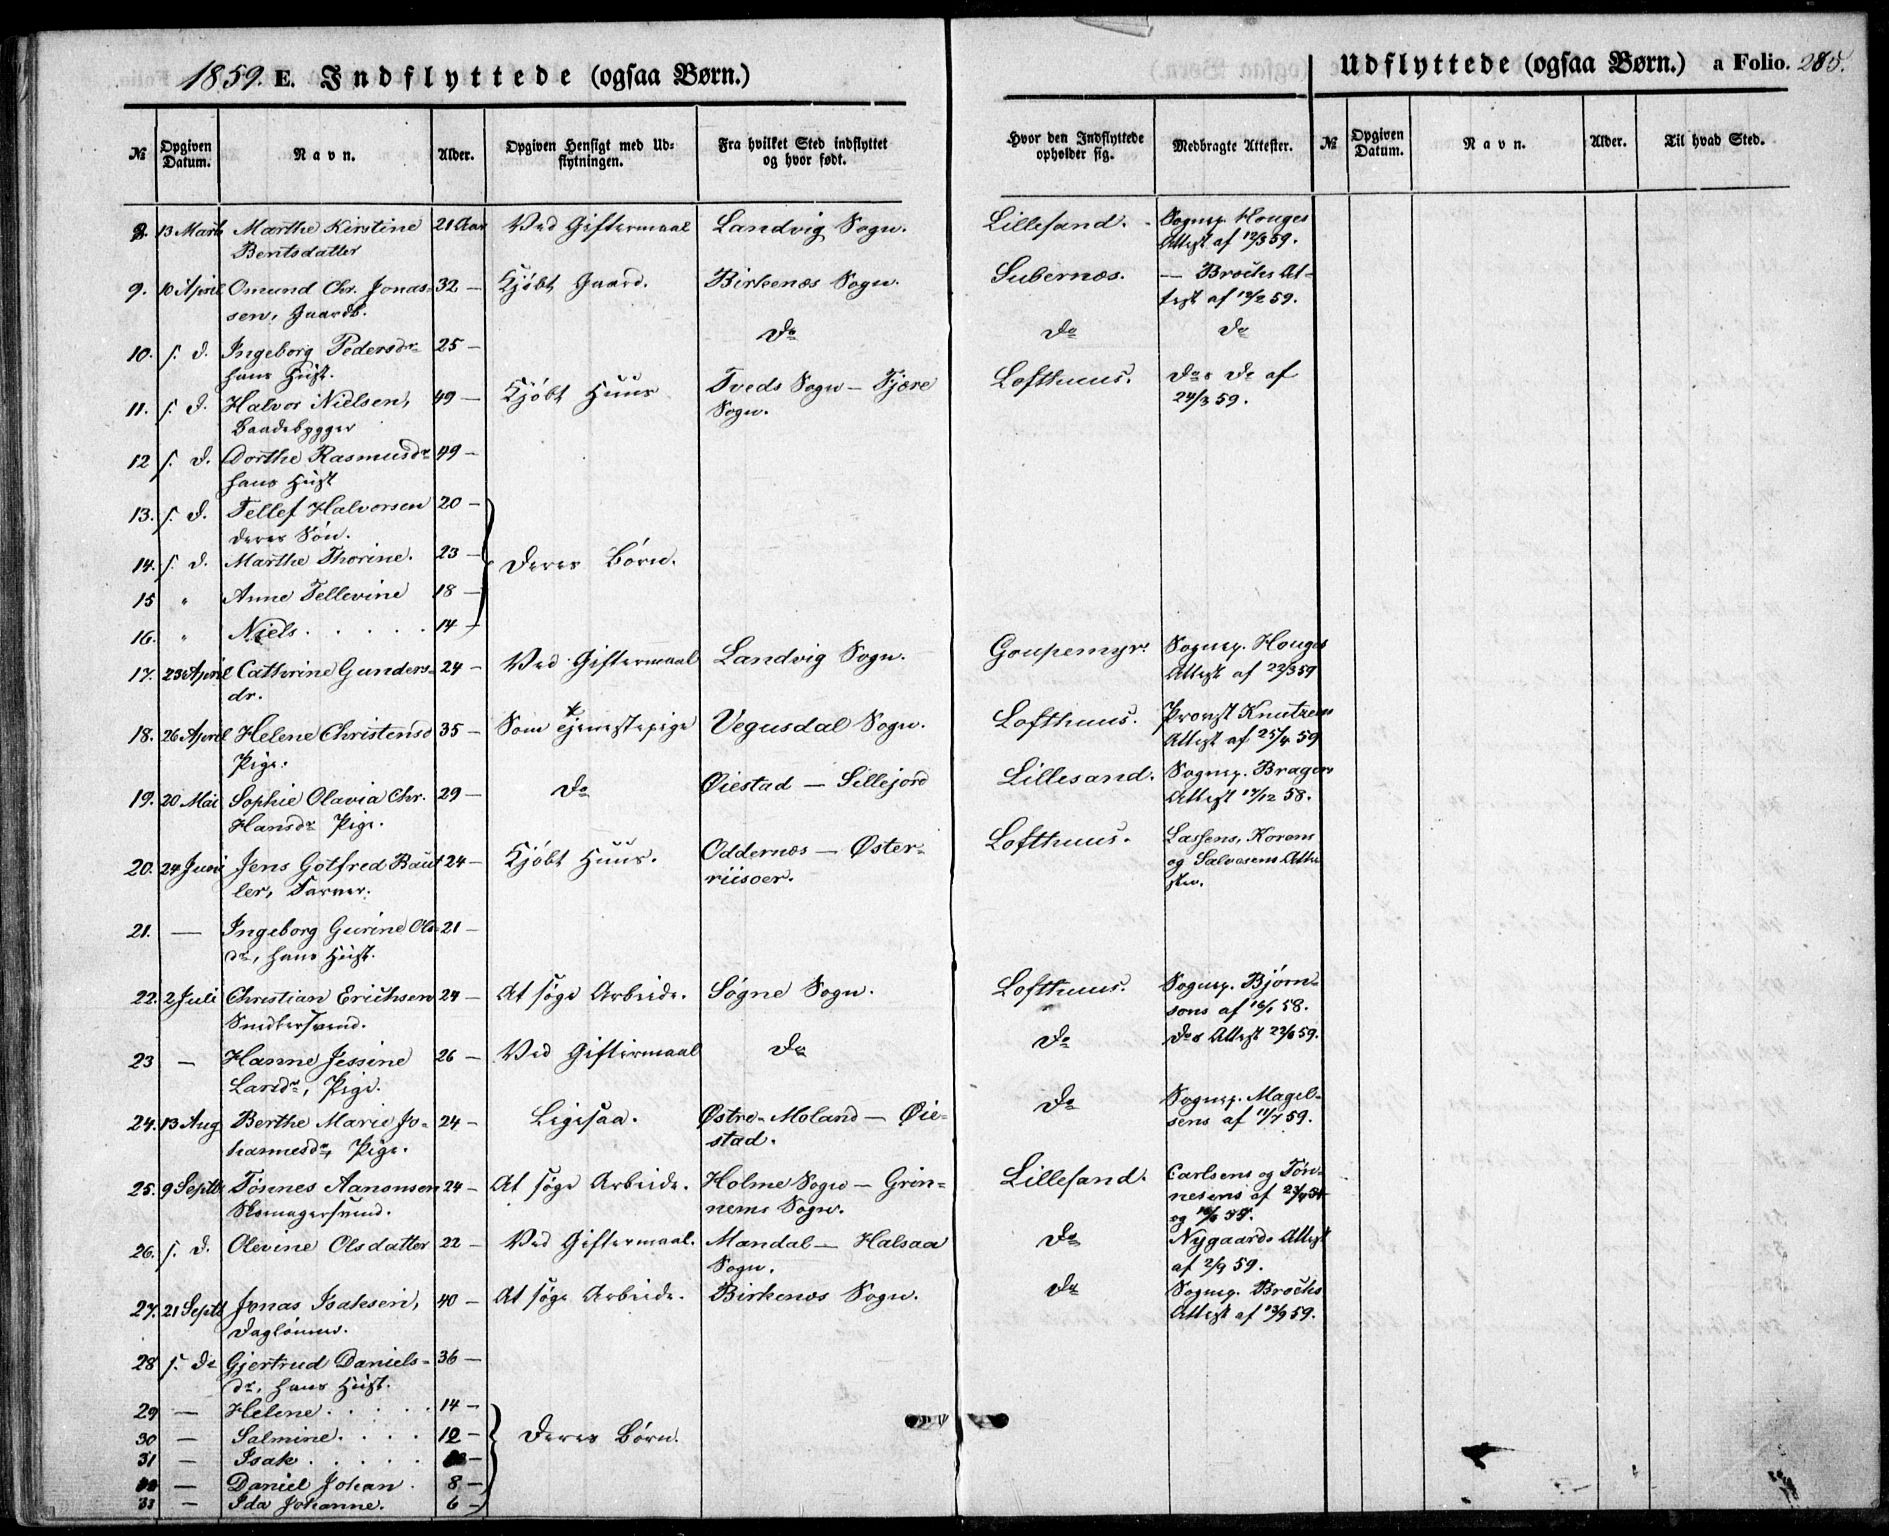 1859. E. Indflyttede (ogsaa Børn.)
Udflyttede (ogsaa Børn.) a Folio. 285.
№ Opgiven Datum. Navn. Alder. Opgiven Hensigt med Udflytningen. Fra hvilket Sted indflyttet og hvor født. Hvor den Indflyttede opholder sig. Medbragte Attester. № Opgiven Datum. Navn. Alder. Til hvad Sted.
8. 13 Marts Marthe Kirstine 21 Aar Ved Giftermaal Landvig Sogn. Lillesand. Sognep. Houges
Bentsdatter Attest af 12/3 59.
9. 10 April Omund Chr. Jonas- 32 — Kjøbt Gaard. Birkenæs Sogn. Subernæs. — Brochs At-
sen, Gaardb. test af 12/2 59.
10. s. D. Ingeborg Pedersdr. 25 — Do Do Do
hans Hust.
11. s. D. Halvor Nielsen, 49 — Kjøbt Huus Tveds Sogn — Fjære Lofthuus. Dos Do af
Baadebygger Sogn. 24/3 59.
12 s. D. Dorthe Rasmusdr. 49 —
hans Hust
13. s. D. Tellef Halvorsen 20 —
deres Søn.
14. s. D. Marthe Thorine. 23 — Deres Børn.
15 " Anne Tellevine 18 —
16. " Niels . . . . . 14 —
17. 23 April Cathrine Gunders- 24 — Ved Giftermaal Landvig Sogn. Goupemyr. Sognep. Houges
dr. Attest af 22/3 59
18. 26 April Helene Christensd 35 — Som Tjenestepige Vegusdal Sogn. Lofthuus. Provst Knutzens
Pige. Attest af 25/4 59
19. 20 Mai Sophie Olavia Chr. 29 — Do Øiestad — Sillejord Lillesand. Sognep. Brager
Hansdr. Pige. Attest 17/12 58.
20. 24 Juni Jens Gotfred Baut 24 — Kjøbt Huus. Oddernæs — Øster- Lofthuus. Lassens, Korens
ler, Farver. riisoer. og Salvesens Atte
ster.
21. — Ingeborg Gurine Ols- 21 —
dr., hans Hust.
22. 2 Juli Christian Erichsen 24 — At søge Arbeide. Søgne Sogn. Lofthuus. Sognep. Bjørn-
Smedsvend. sons af 16/1 58.
23 — Hanne Jessine 26 — Ved Giftermaal Do Do Dos Attest 22/6 59.
Larsdr., Pige.
24. 13 Aug Berthe Marie Jo- 24 — Ligesaa. Østre-Moland — Øie- Do Sognep. Magel-
hannesdr, Pige. stad. sens af 11/7 59.
25. 9 Septb Tønnes Aanonsen 24 — At søge Arbeide. Holme Sogn — Grin- Lillesand. Carlsens og Tøn-
Skomagersvend. nems Sogn. nesens af
26. s. D. Olevine Olsdatter 22 — Ved Giftermaal. Mandal — Halsaa Do Nygaards Attest
Sogn. af 2/9 59.
27. 21 Septb Jonas Isaksen, 40 — At søge Arbeide. Birkenæs Sogn. Do Sognep. Brochs
Daglønner. Attest af 13/9 59.
28 s. Do Gjertrud Daniels- 36 —
dr., hans Hust.
29 — Helene . . . . . 14 —
30 — Salmine . . . . 12 — Deres Børn.
31 — Isak . . . . .
— Daniel Johan . 8 —
33 — Ida Johanne. 6 —